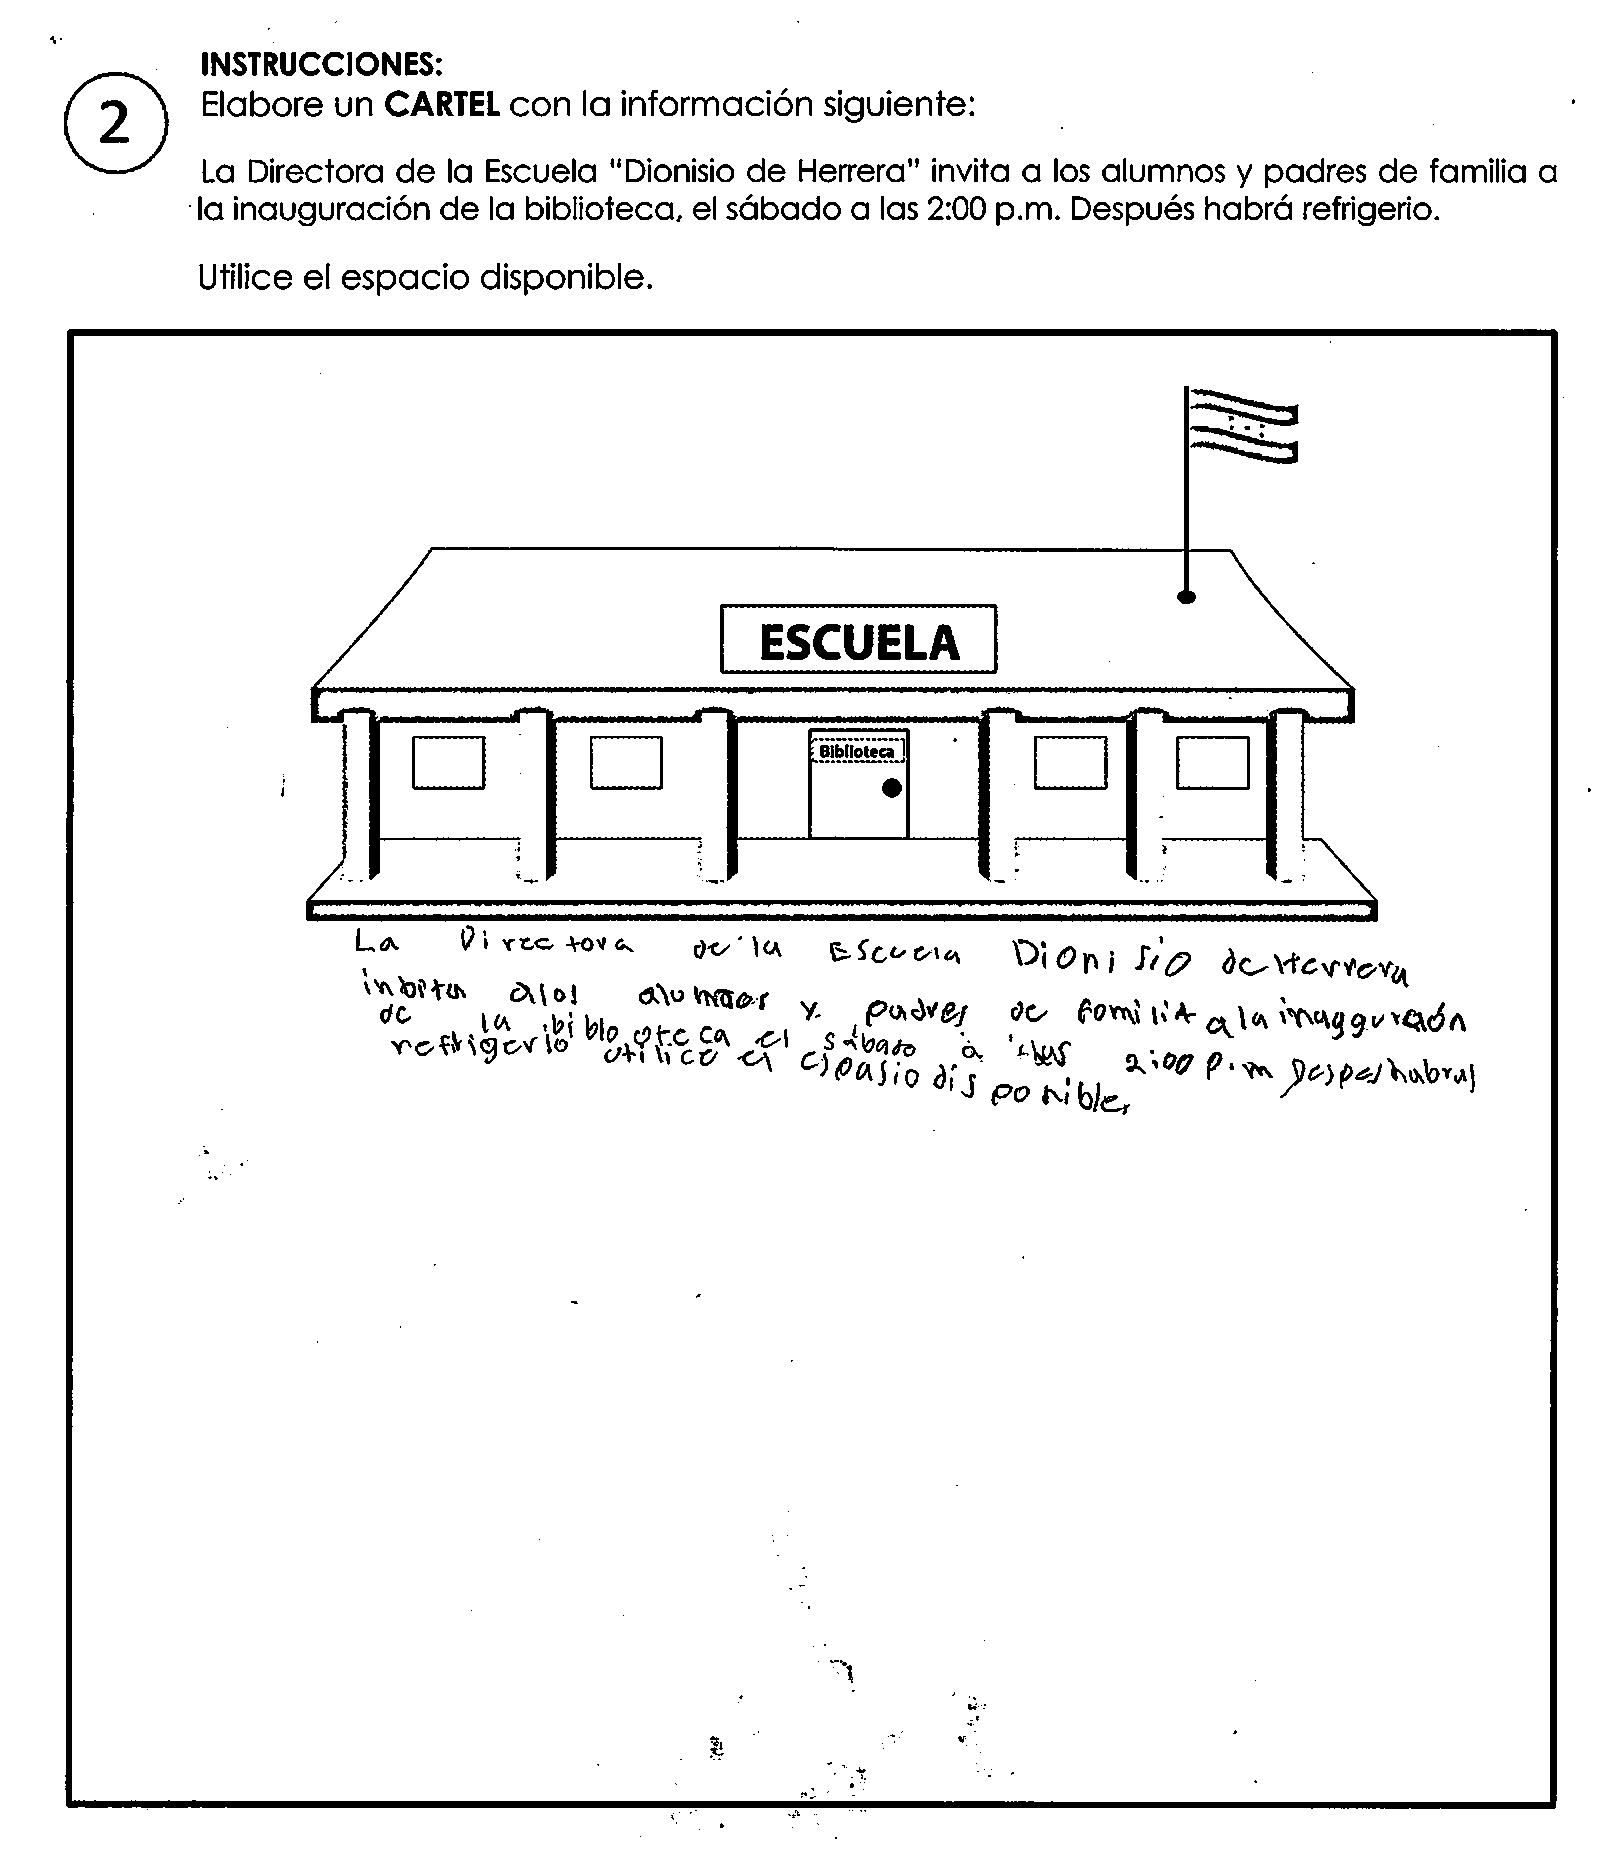 INSTRUCCIONES:
2
Elabore un CARTEL con la información siguiente:
La Directora de la Escuela "Dionisio de Herrera" invita a los alumnos y padres de familia a
la inauguración de la biblioteca, el sábado a las 2:00 p.m. Después habrá refrigerio.
Utilice el espacio disponible.
ESCUELA
Biblioteca
La Directora de la Escuela Dionisio de Herrera
inbita alos alumnos y padres de familia a la inagguración
de la biblooteca el sábado a las 2:00 p.m Despes habra
refrigerio utilice el espasio disponible,